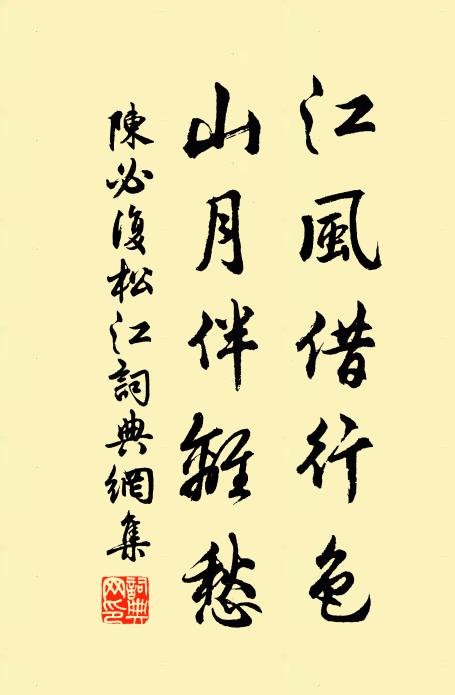 江風借行色
山月伴離愁
陳必復松江詞典網集
詞典网印